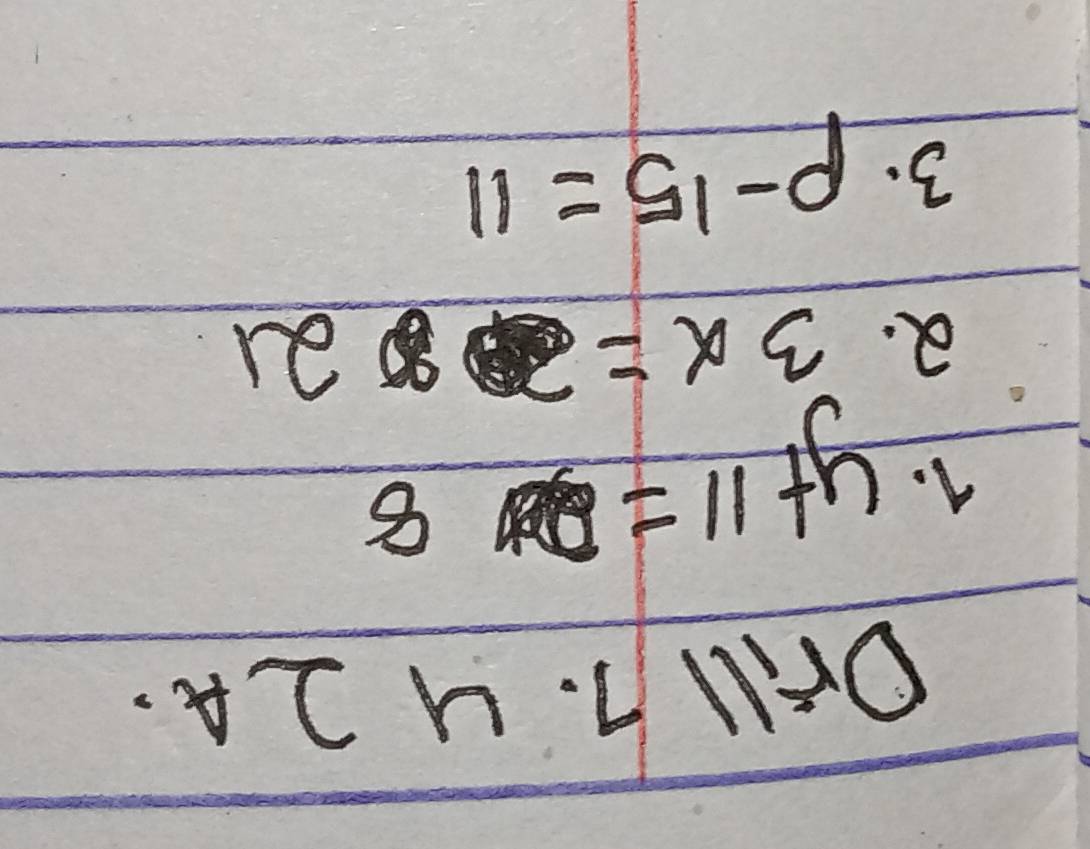 Drill 7. 4 2A.
1. y+11 = 8
2. 3x = 21
3. p-15 = 11